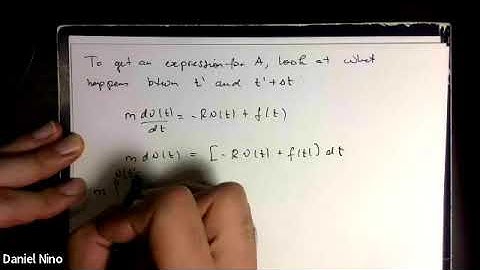 To get an expression for A, look at what
happens btwn t' and t'+Δt
m dv(t)/dt = -Rv(t) + f(t)
m dv(t) = [-Rv(t) + f(t)] dt
m ∫
Daniel Nino